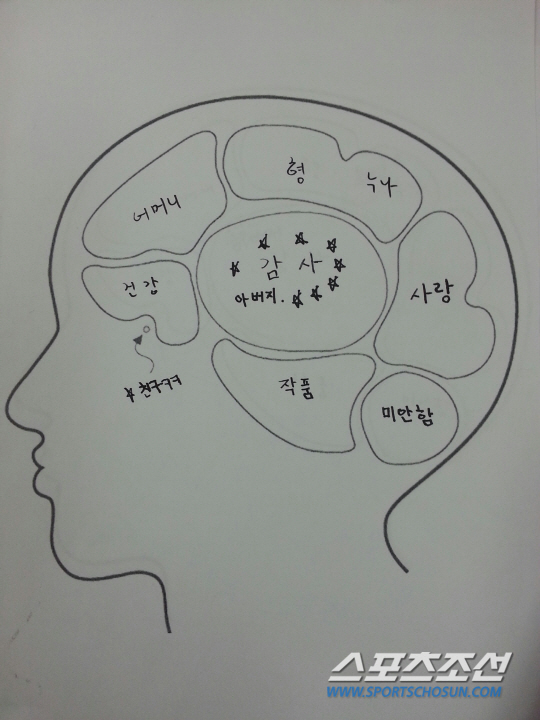 형 누나
어머니
감 사
아버지.
사랑
건강
친구ㅋㅋ
작품
미안함
스포츠조선
WWW.SPORTSCHOSUN.COM